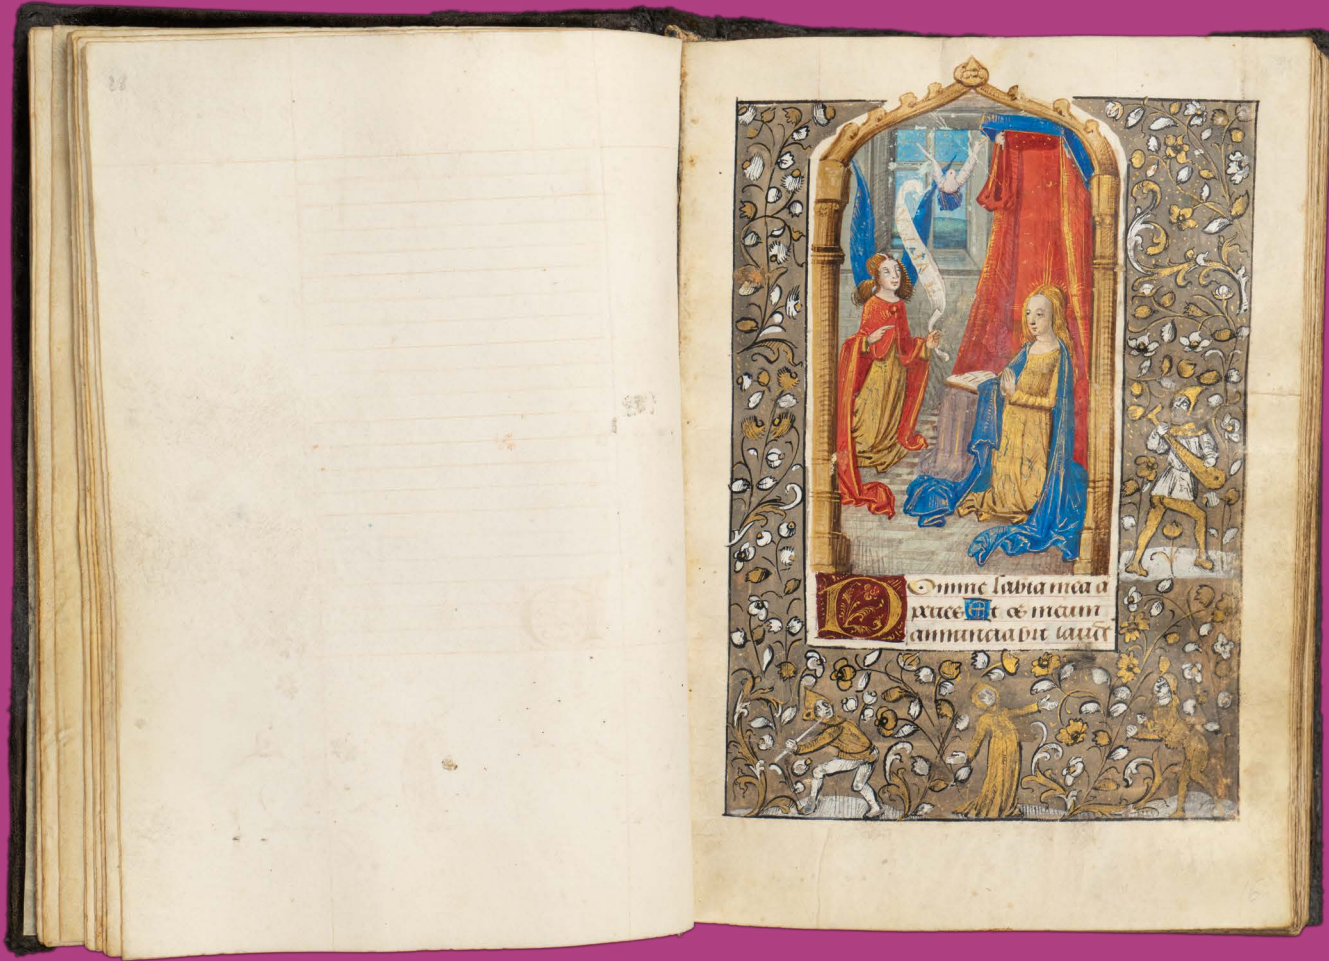 28
Domine labia mea a
peries Et os meum
annunciabit laud